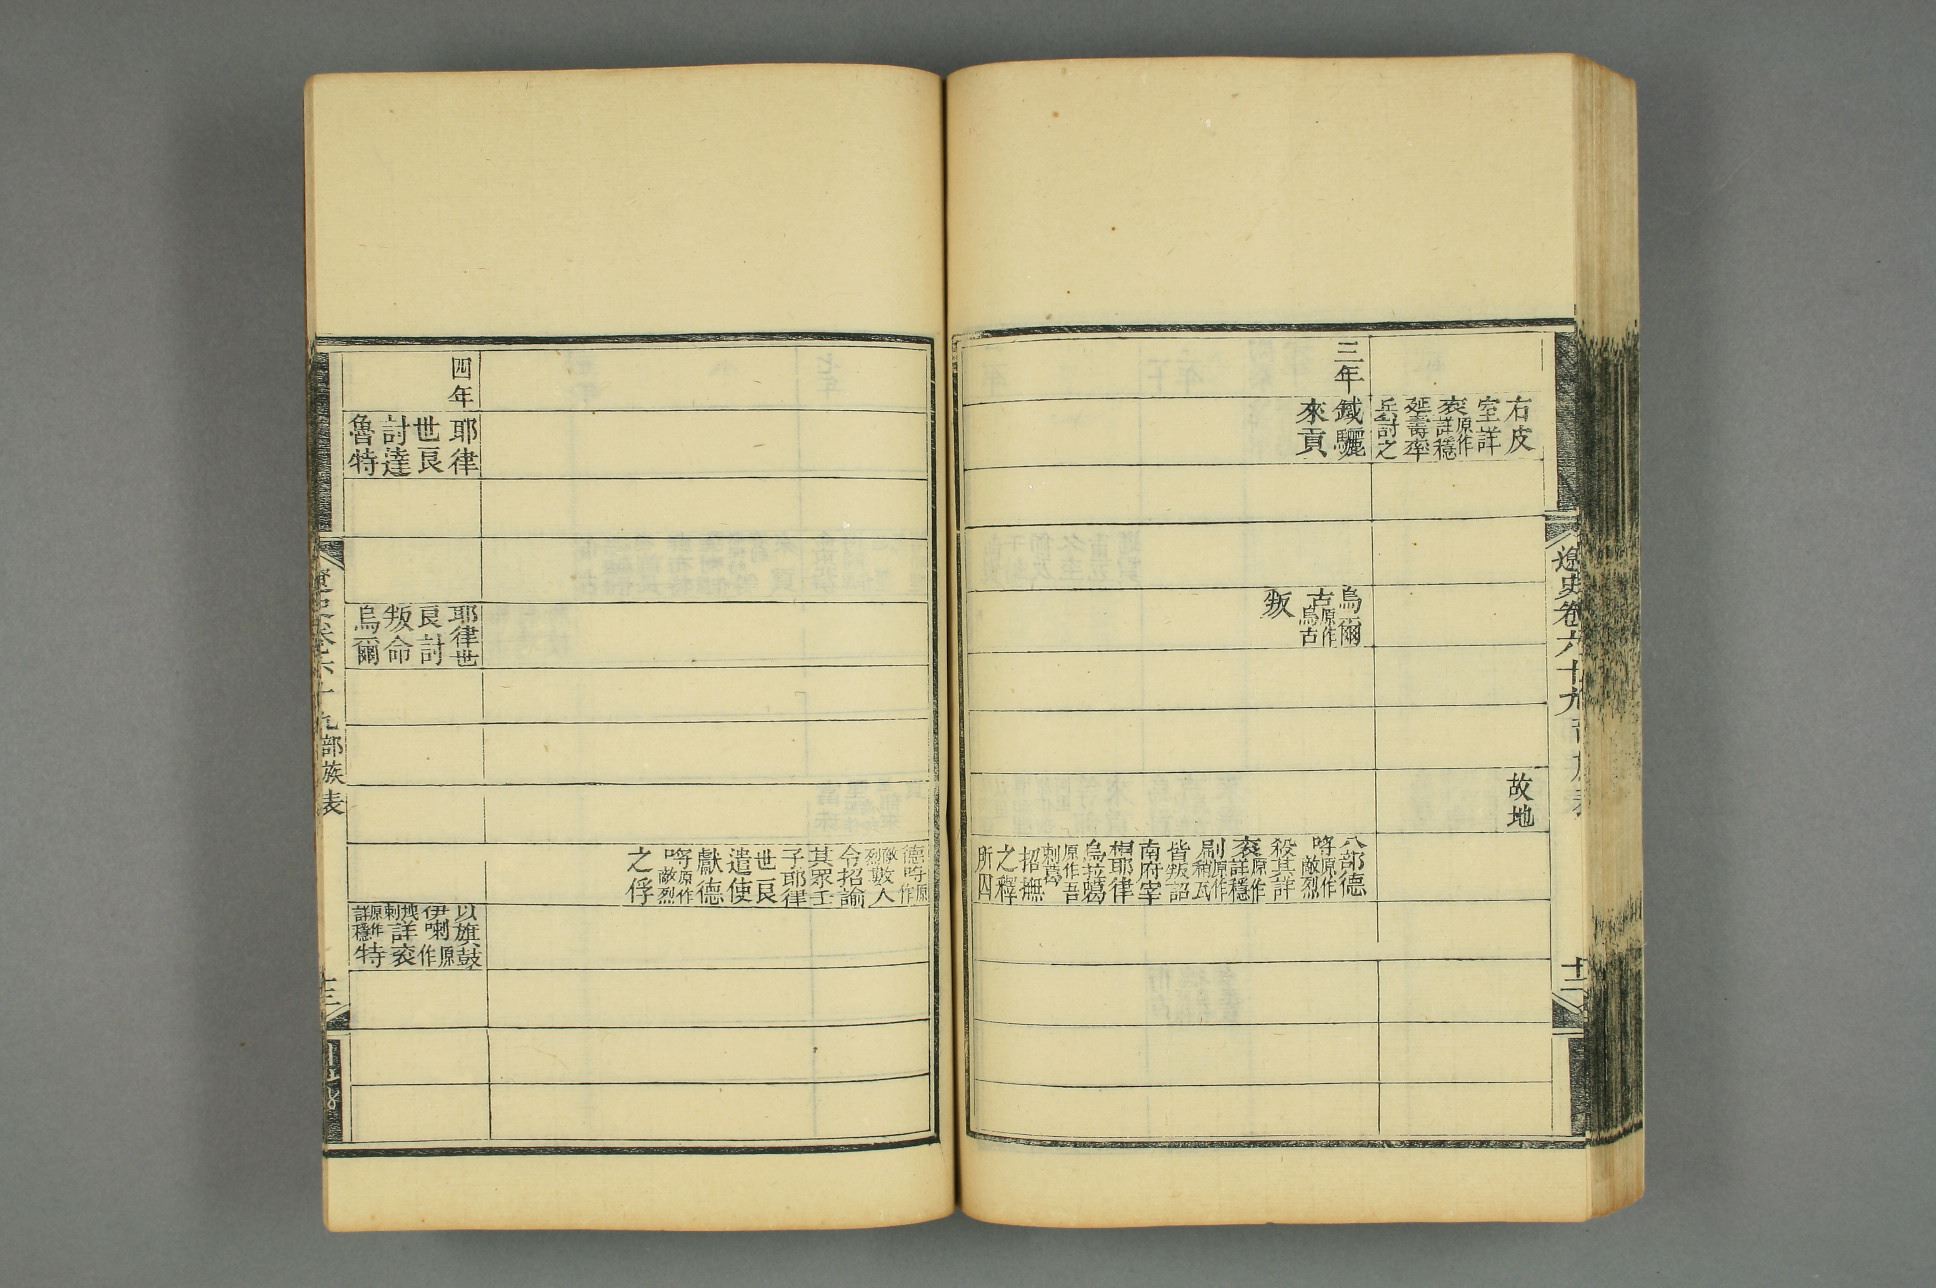 遼史卷六十九部族表
十二
右皮
室詳
袞原作詳穩
延壽率
兵討之
故地
三年
鐵驪
來貢
烏爾
古原作烏古
叛
八部德
哷原作敵烈
殺其詳
袞原作詳穩
刷原作稍瓦
皆叛詔
南府宰
相耶律
烏拉噶
原作吾剌葛
招撫
之釋
所囚
德哷原作
敵烈數人
令招諭
其眾壬
子耶律
世良
遣使
獻德
哷原作敵烈
之俘
四年
耶律
世良
討達
魯特
耶律世
良討
叛命
烏爾
以旗鼓
伊喇原作
拽剌詳袞
原作詳穩特
遼史卷六十九部族表
十三